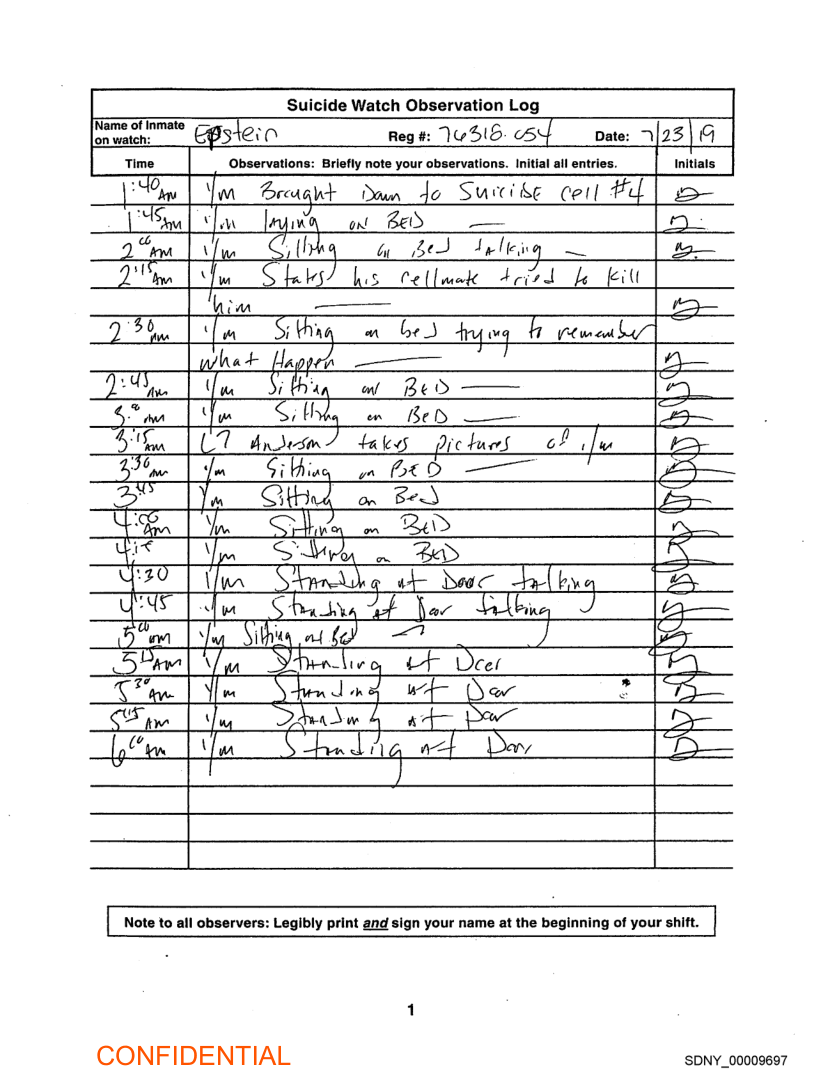 Suicide Watch Observation Log
Name of Inmate on watch: Epstein Reg #: 76318-054 Date: 7/23/19
Time Observations: Briefly note your observations. Initial all entries. Initials
1:40 AM I/m Brought Down to SUICIDE cell #4
1:45 AM I/m laying on BED
2:00 AM I/m Sitting on Bed talking
2:15 AM I/m States his cellmate tried to kill
him
2:30 AM I/m Sitting on bed trying to remember
what Happen
2:45 AM I/m Sitting on BED
3:00 AM I/m Sitting on BED
3:15 AM LT Anderson takes pictures of i/m
3:30 AM I/m Sitting on BED
3:45 I/m Sitting on Bed
4:00 AM I/m Sitting on BED
I/m Sitting on BED
4:30 I/m Standing at Door talking
4:45 I/m Standing at Door talking
5:00 AM I/m Sitting on BED
5:15 AM I/m Standing at Door
5:30 AM I/m Standing at Door
AM I/m Standing at Door
6:00 AM I/m Standing at Door
Note to all observers: Legibly print and sign your name at the beginning of your shift.
1
CONFIDENTIAL
SDNY_00009697